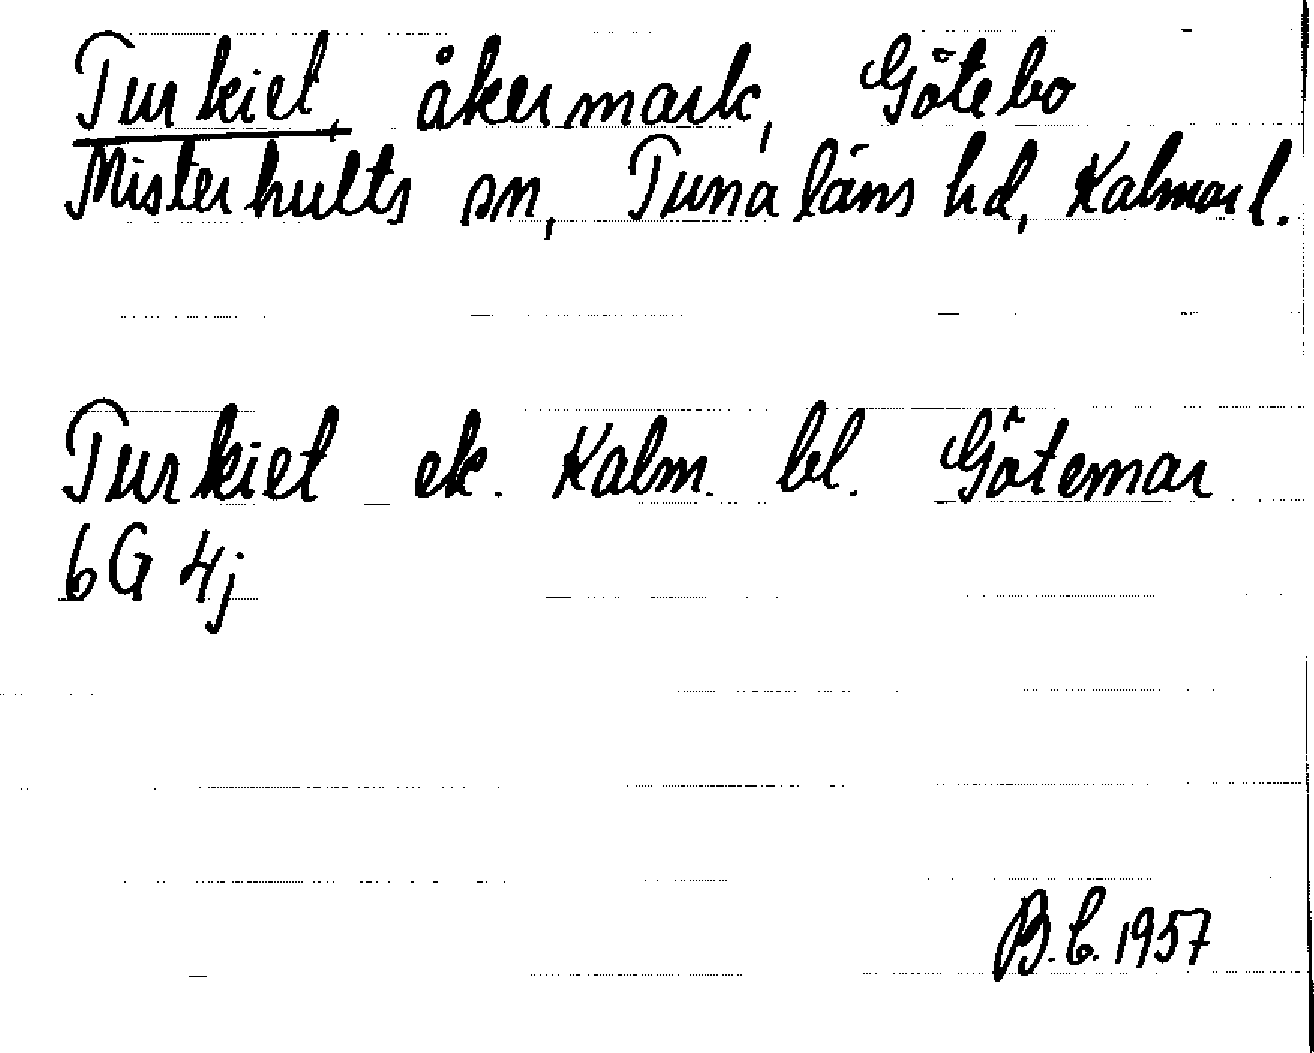 Turkiet, åkermark, Götebo
Misterhults sn, Tunaläns hd, Kalmar l.
Turkiet ek. Kalm. bl. Götemar
6G 4j
B.C. 1957